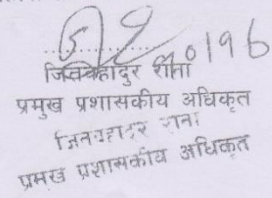 जितबहादुर राना
प्रमुख प्रशासकीय अधिकृत
जितबहादुर राना
प्रमुख प्रशासकीय अधिकृत